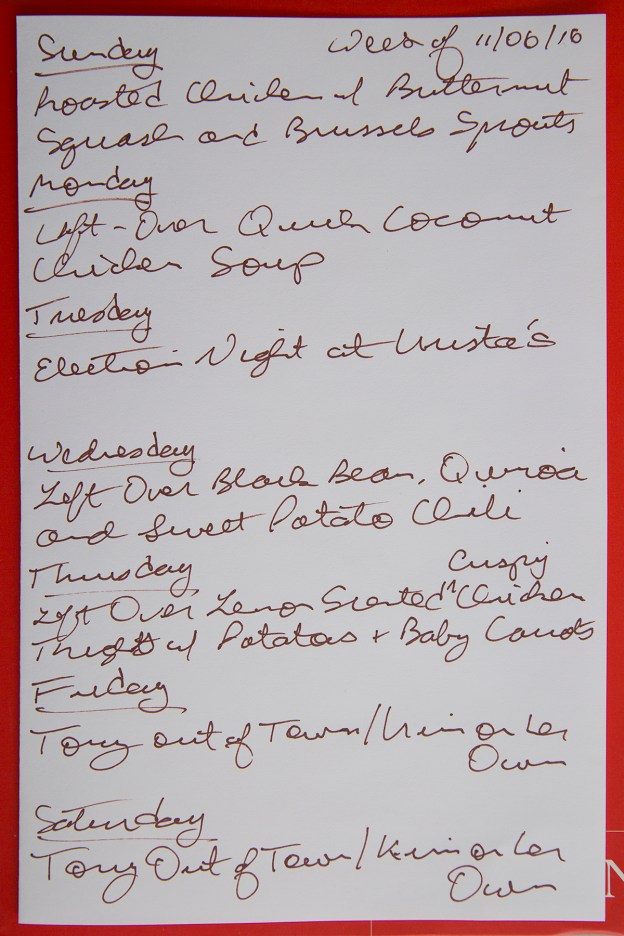 Sunday Week of 11/06/16
Roasted Chicken w/ Butternut
Squash and Brussels Sprouts
Monday
Left-Over Quick Coconut
Chicken Soup
Tuesday
Election Night at Krista's
Wednesday
Left Over Black Bean, Quinoa
and Sweet Potato Chili
Thursday
Crispy
Left Over Lemon Scented ^ Chicken
Thighs w/ Potatoes + Baby Carrots
Friday
Tony out of Town/Kim on her
Own
Saturday
Tony Out of Town/Kim on her
Own
N